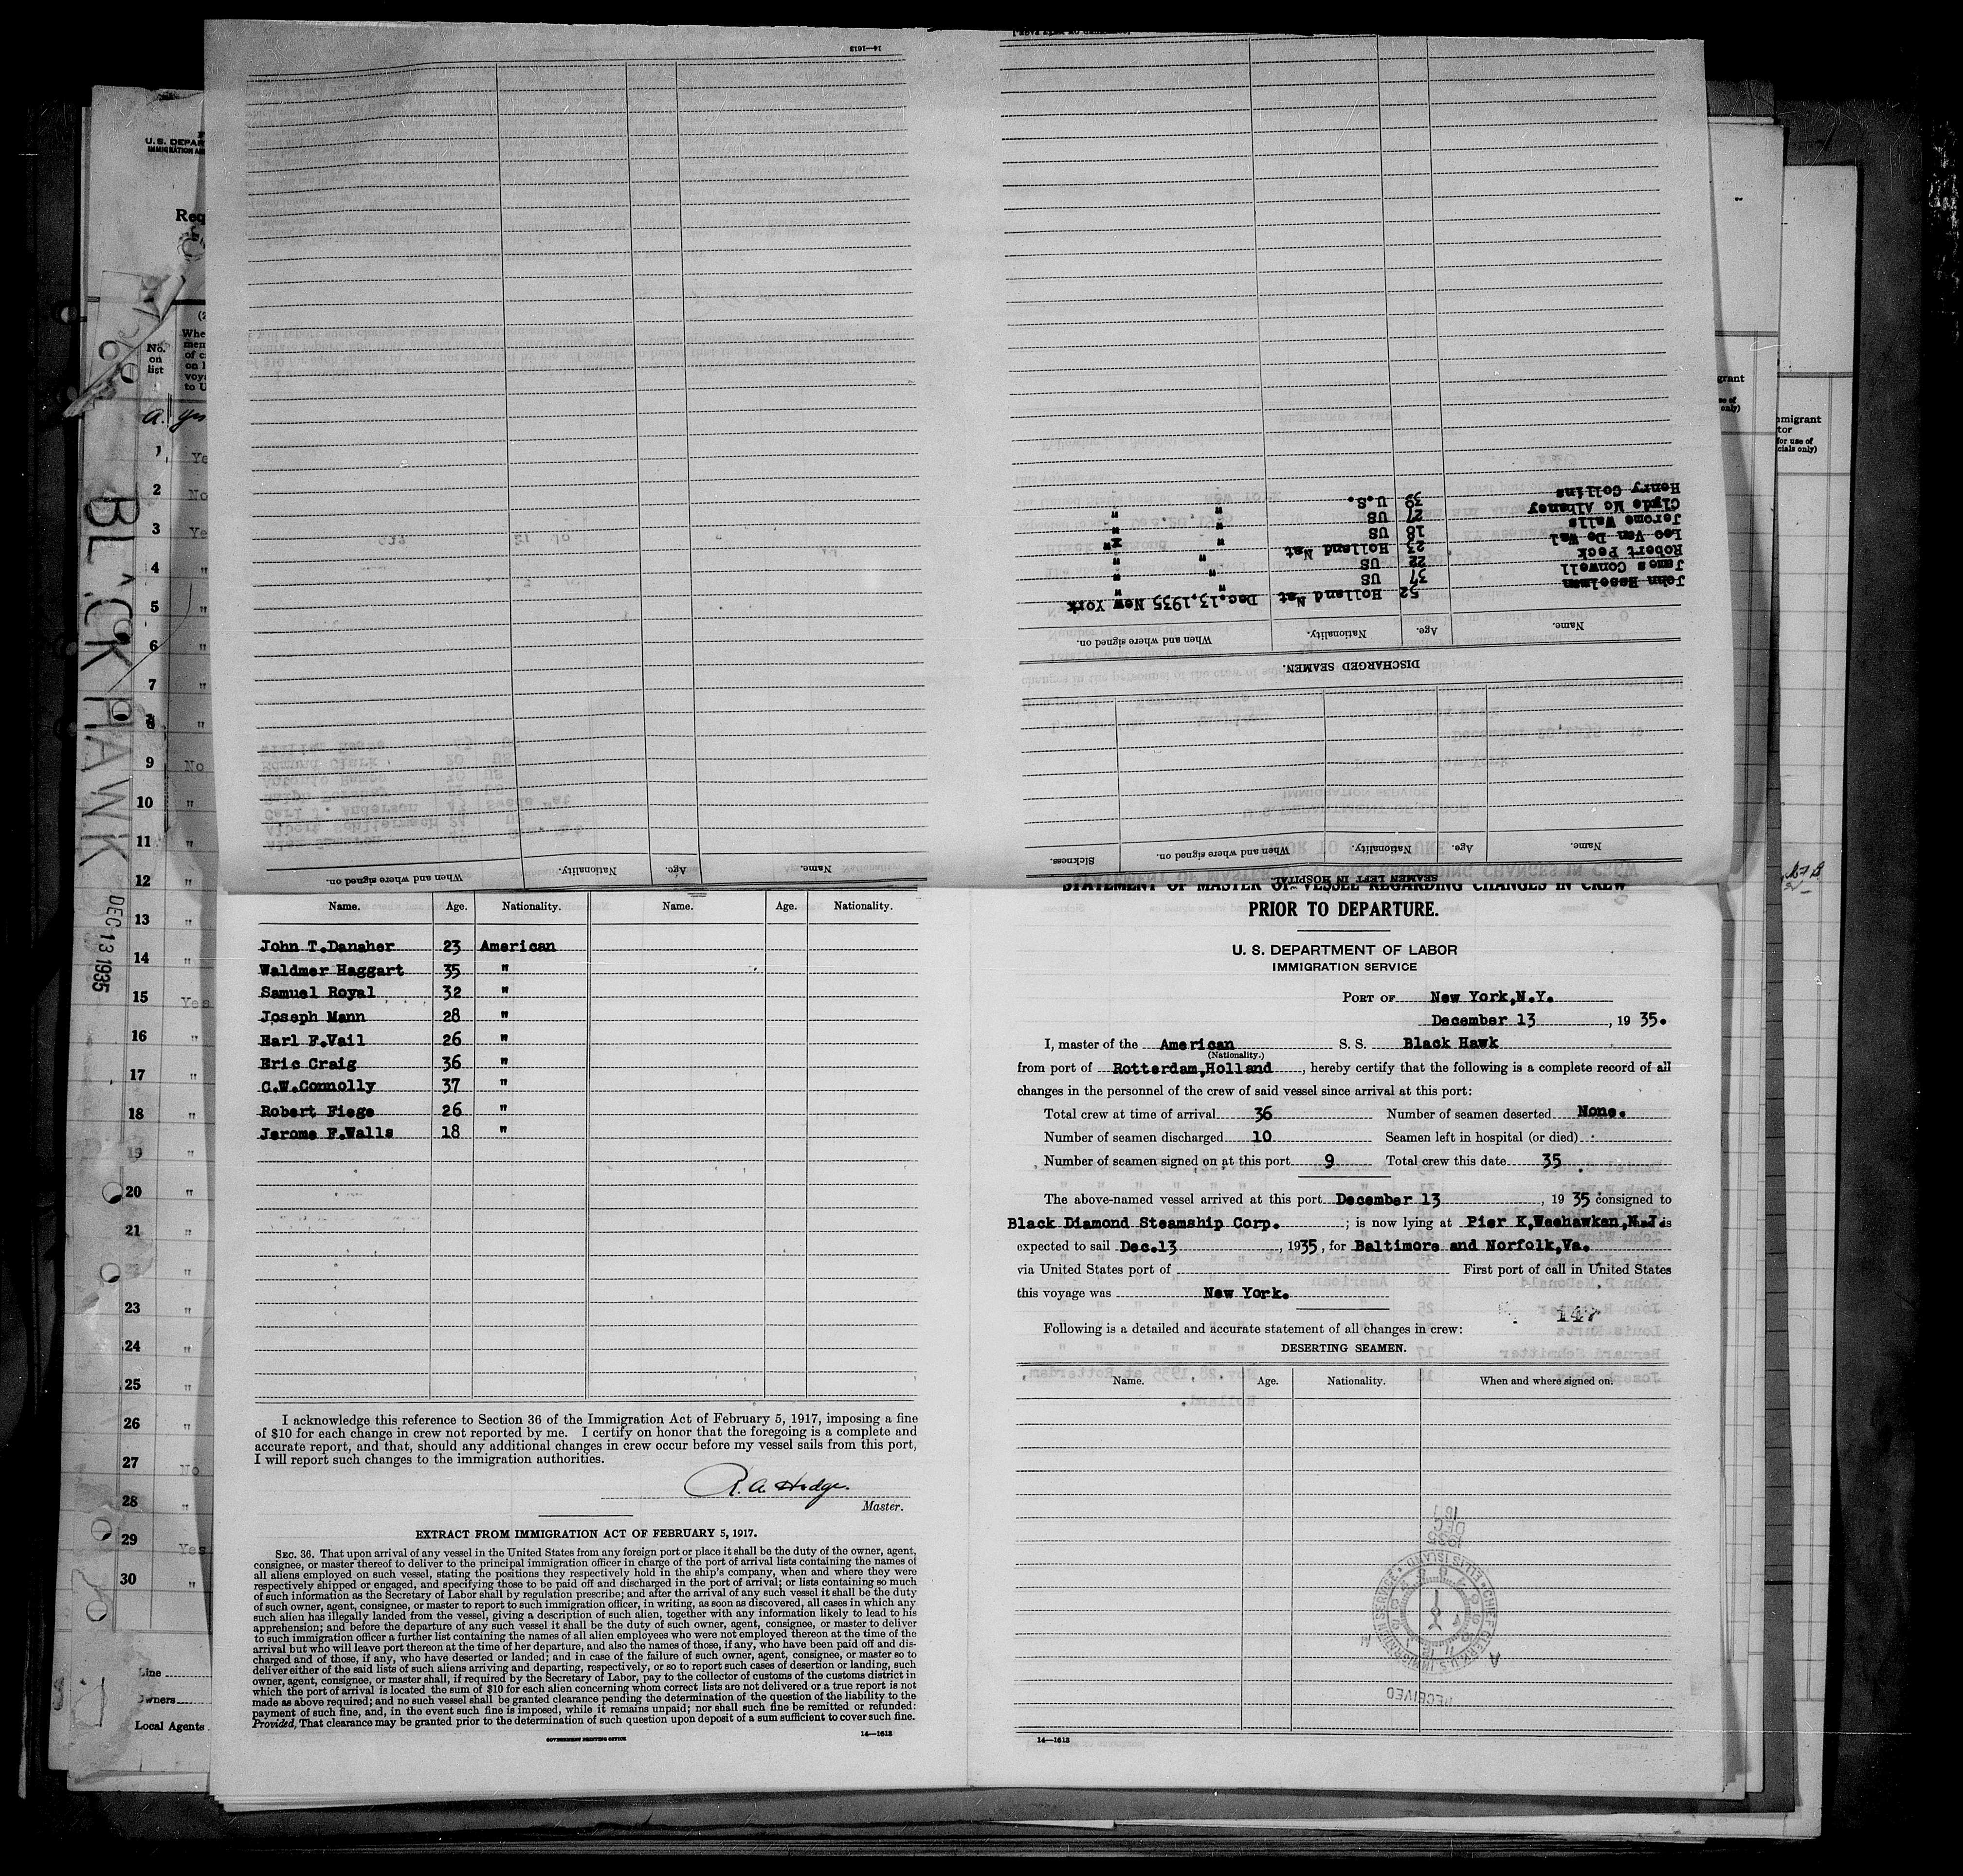 14—1613
When and where signed on.
Nationality.
Age.
Name.
SEAMEN LEFT IN HOSPITAL.
Name.
Age.
Nationality.
When and where signed on.
Sickness.
DISCHARGED SEAMEN.
Name.
Age.
Nationality.
When and where signed on.
John Esselman 52 Holland Nat Dec.13,1935 New York
James Conwell 37 US " "
Robert Peck 22 US " "
Leo Van De Wal 23 Holland Nat " "
Jerome Walls 18 US " "
Clyde Mc Albaney 27 US " "
Henry Collins 39 U.S. " "
U. S. DEPAR
IMMIGRATION
Req
No.
on
list
a. yes
1 Ye
2 No
3 Ye
4 "
5 "
6 "
7 "
8 "
9 No
10 "
11 "
12 "
13 "
14 "
15 Yes
16 "
17 "
18 "
19 "
20 "
21 "
22 "
23 "
24 "
25 "
26 "
27 No
28 "
29 Yes
30 "
Line
Owners
Local Agents
BL^CK HAWK
DEC 13 1935
Name. Age. Nationality. Name. Age. Nationality.
John T.Danaher 23 American
Waldmer Haggart 35 "
Samuel Royal 32 "
Joseph Mann 28 "
Earl F.Vail 26 "
Eric Craig 36 "
C.W.Connolly 37 "
Robert Fiege 26 "
Jerome F.Walls 18 "
I acknowledge this reference to Section 36 of the Immigration Act of February 5, 1917, imposing a fine
of $10 for each change in crew not reported by me. I certify on honor that the foregoing is a complete and
accurate report, and that, should any additional changes in crew occur before my vessel sails from this port,
I will report such changes to the immigration authorities.
R. A. Hodge.
Master.
EXTRACT FROM IMMIGRATION ACT OF FEBRUARY 5, 1917.
SEC. 36. That upon arrival of any vessel in the United States from any foreign port or place it shall be the duty of the owner, agent,
consignee, or master thereof to deliver to the principal immigration officer in charge of the port of arrival lists containing the names of
all aliens employed on such vessel, stating the positions they respectively hold in the ship's company, when and where they were
respectively shipped or engaged, and specifying those to be paid off and discharged in the port of arrival; or lists containing so much
of such information as the Secretary of Labor shall by regulation prescribe; and after the arrival of any such vessel it shall be the duty
of such owner, agent, consignee, or master to report to such immigration officer, in writing, as soon as discovered, all cases in which any
such alien has illegally landed from the vessel, giving a description of such alien, together with any information likely to lead to his
apprehension; and before the departure of any such vessel it shall be the duty of such owner, agent, consignee, or master to deliver
to such immigration officer a further list containing the names of all alien employees who were not employed thereon at the time of the
arrival but who will leave port thereon at the time of her departure, and also the names of those, if any, who have been paid off and dis-
charged and of those, if any, who have deserted or landed; and in case of the failure of such owner, agent, consignee, or master so to
deliver either of the said lists of such aliens arriving and departing, respectively, or so to report such cases of desertion or landing, such
owner, agent, consignee, or master shall, if required by the Secretary of Labor, pay to the collector of customs of the customs district in
which the port of arrival is located the sum of $10 for each alien concerning whom correct lists are not delivered or a true report is not
made as above required; and no such vessel shall be granted clearance pending the determination of the question of the liability to the
payment of such fine, and, in the event such fine is imposed, while it remains unpaid; nor shall such fine be remitted or refunded:
Provided, That clearance may be granted prior to the determination of such question upon deposit of a sum sufficient to cover such fine.
GOVERNMENT PRINTING OFFICE 14—1613
STATEMENT OF MASTER OF VESSEL REGARDING CHANGES IN CREW
PRIOR TO DEPARTURE.
U. S. DEPARTMENT OF LABOR
IMMIGRATION SERVICE
PORT OF New York,N.Y.
December 13, 1935.
I, master of the American S. S. Black Hawk
(Nationality.)
from port of Rotterdam,Holland, hereby certify that the following is a complete record of all
changes in the personnel of the crew of said vessel since arrival at this port:
Total crew at time of arrival 36 Number of seamen deserted None.
Number of seamen discharged 10 Seamen left in hospital (or died)
Number of seamen signed on at this port 9 Total crew this date 35
The above-named vessel arrived at this port December 13, 1935 consigned to
Black Diamond Steamship Corp.; is now lying at Pier K,Weehawken,N.J. is
expected to sail Dec.13, 1935, for Baltimore and Norfolk,Va.
via United States port of First port of call in United States
this voyage was New York.
147
Following is a detailed and accurate statement of all changes in crew:
DESERTING SEAMEN.
Name. Age. Nationality. When and where signed on.
14—1613
RECEIVED
CHIEF CLERK U.S. IMMIGRATION SERVICE ELLIS ISLAND
1935
DEC
16
grant
only)
mmigrant
tor
for use of
cials only)